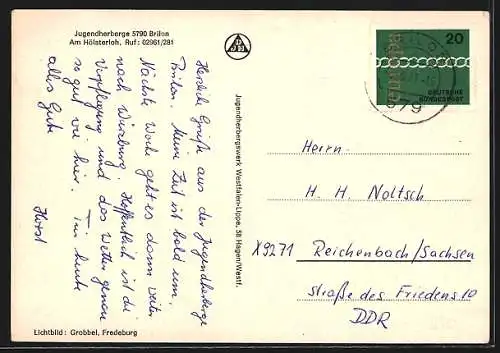 Jugendherberge 5790 Brilon
Am Hölsterloh, Ruf: 02961/281
Herzliche Grüße aus der Jugendherberge
Brilon. Meine Zeit ist bald um.
Nächste Woche geht es dann weiter
nach Würzburg. Hoffentlich ist die
Verpflegung und das Wetter genau
so gut wie hier. Für heute
alles Gute
Horst
Lichtbild: Grobbel, Fredeburg
Jugendherbergswerk Westfalen-Lippe, 58 Hagen/Westf.
20
DEUTSCHE
BUNDESPOST
579
Herrn
H. H. Noltsch
X9271 Reichenbach/Sachsen
Straße des Friedens 10
DDR